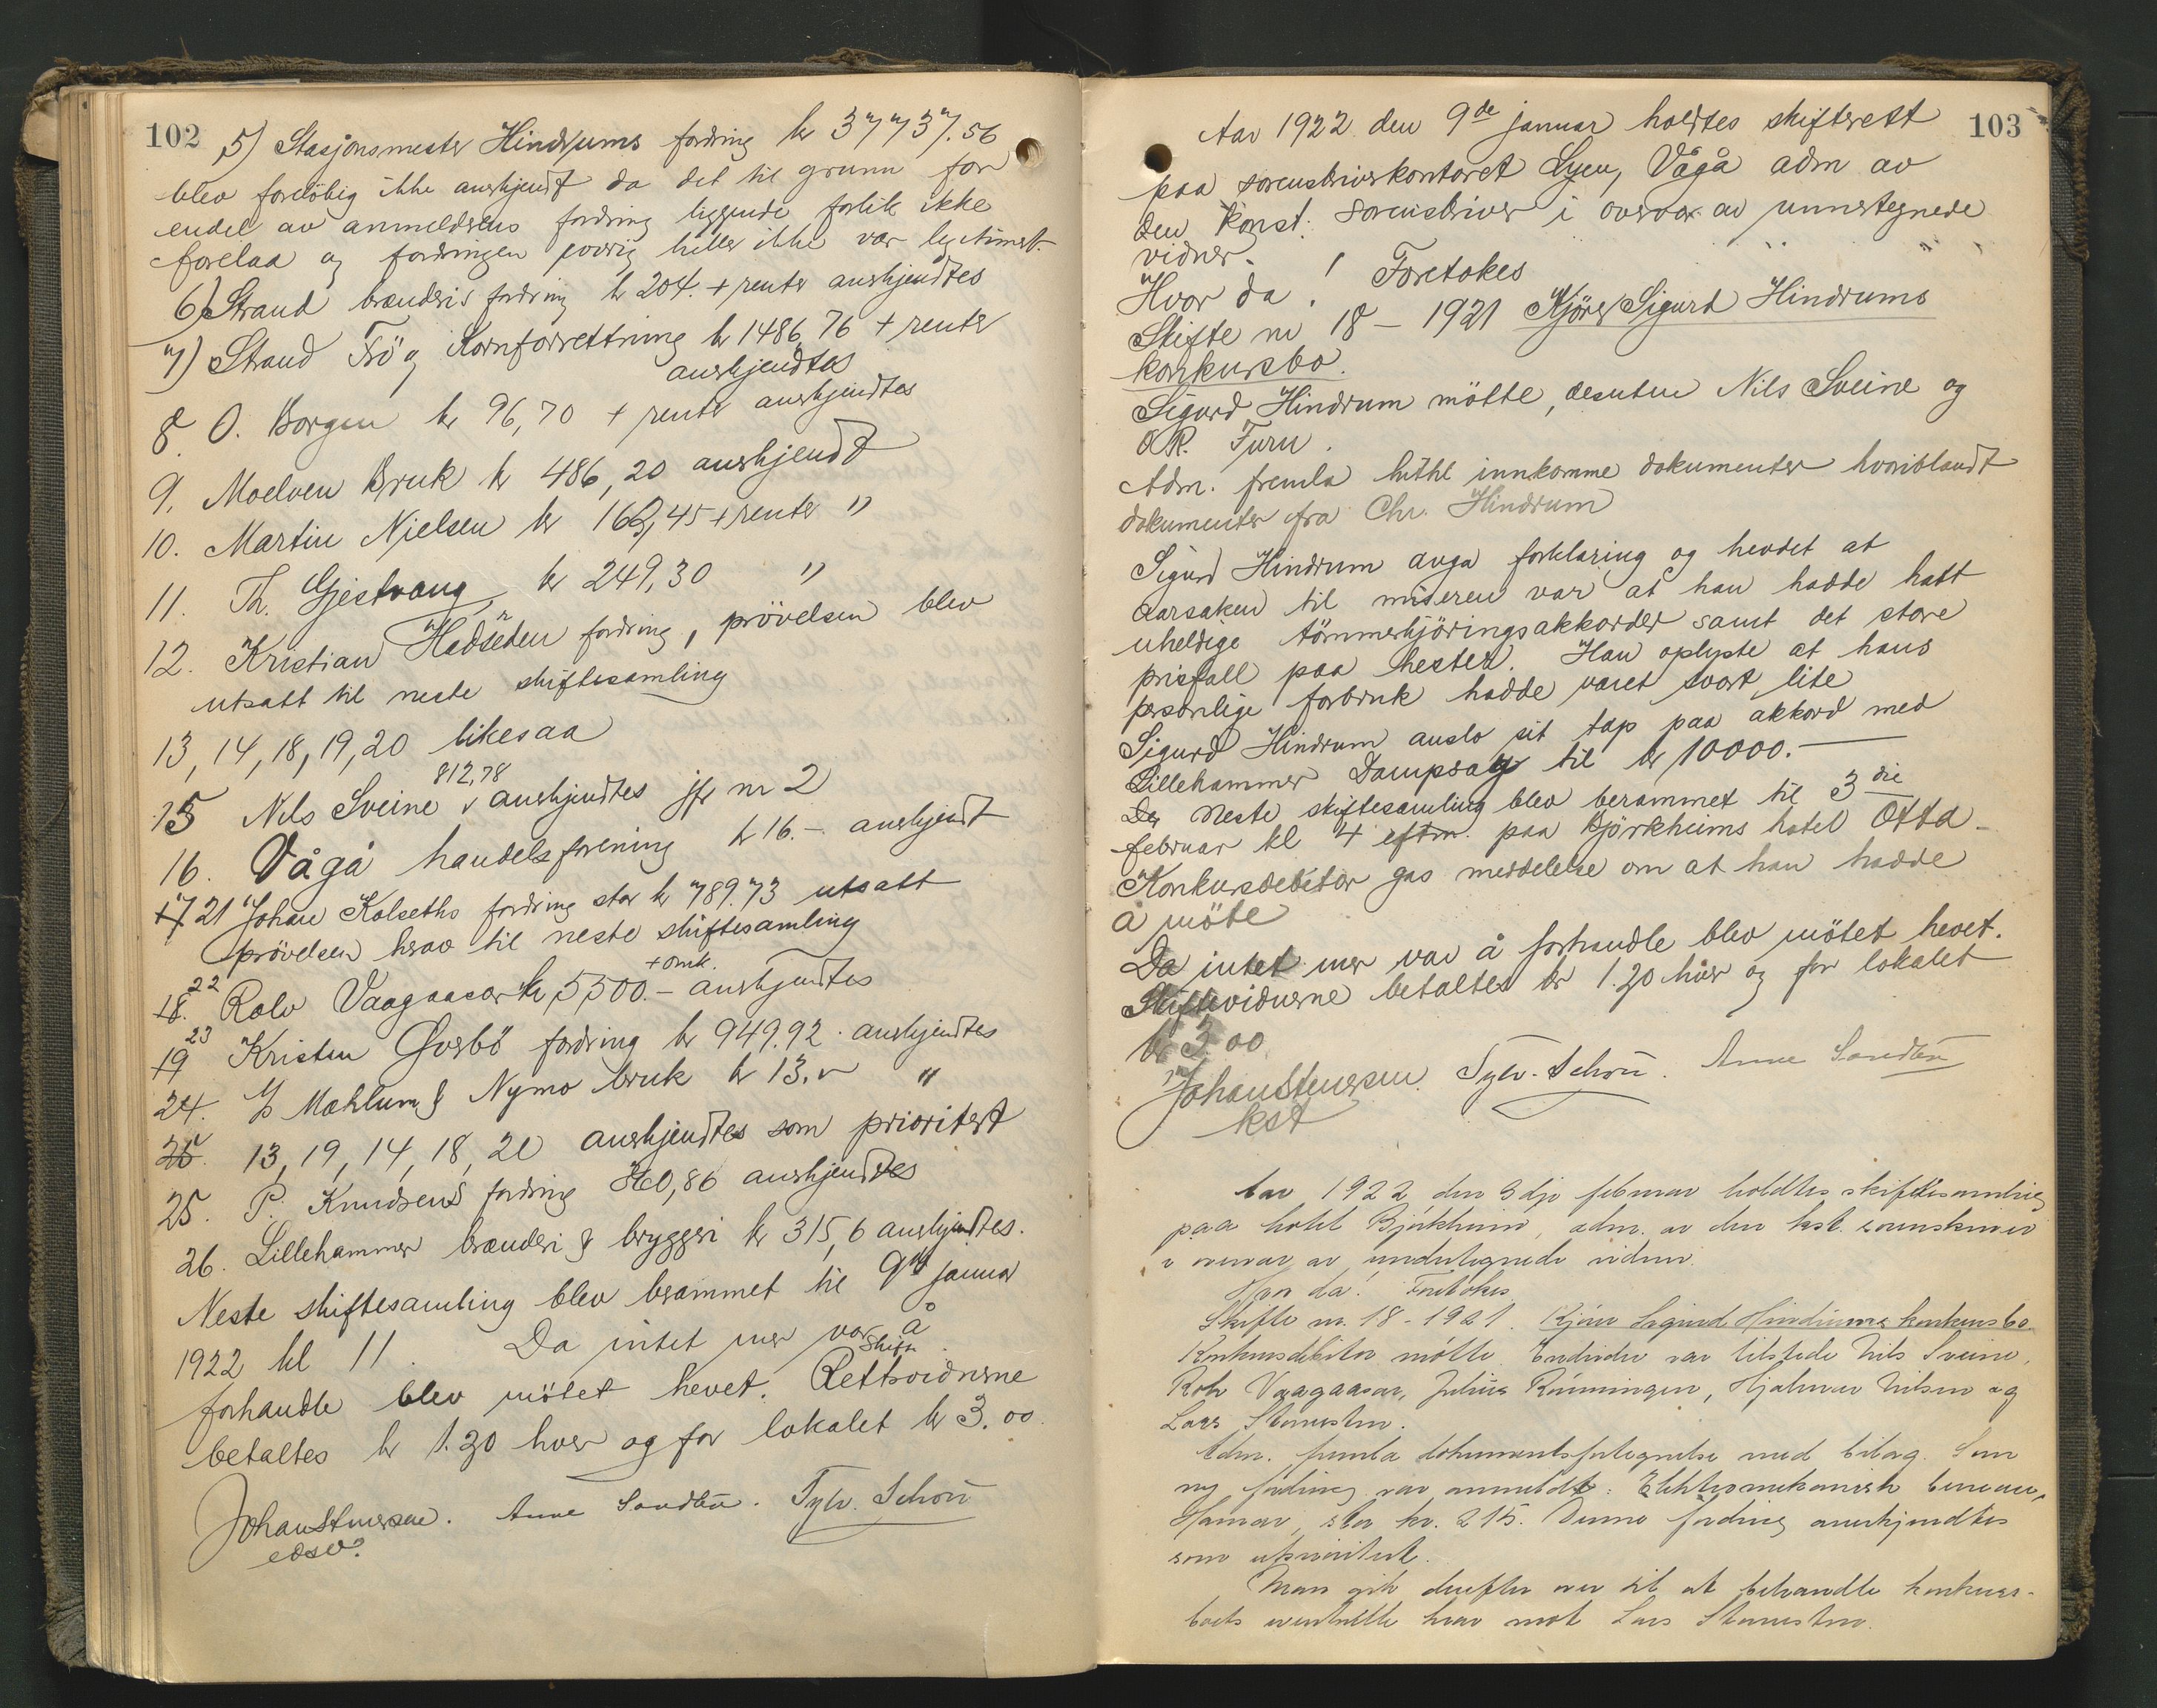 102
5) Stasjonsmester Hindrums fordring kr 37737.56
blev foreløbig ikke anerkjendt da det til grunn for
endel av anmelderens fordring liggende forlik ikke
forelaa og fordringen forøvrig heller ikke var legitimert.
6) Strand brænderis fordring kr 204. + renter anerkjendtes
7) Strand Frö og Kornforrettning kr 1486,76 + renter
anerkjendtes
8. O. Borgen kr 96,70 + renter anerkjendtes
9. Moelven Bruk kr 486,20 anerkjendt
10. Martin Nielsen kr 168,45 + renter "
11. Th. Gjestvang, kr 249,30 "
12. Kristian fordring, prövelsen blev
utsatt til neste skiftesamling
13, 14, 18, 19, 20 likesaa
812,78
15 Nils Sveine v anerkjendtes jfr nr 2
16. Vågå handelsforening kr 16.- anerkjendt
17 21 Johan Kolseths fordring stor kr 789.73 utsatt
prövelsen herav til neste skiftesamling
+ omk.
18. 22 Rolv Vaagaasar kr 5500.- anerkjendtes
19 23 Kristen Øverbö fordring kr 949.92. anerkjendtes
24. Mæhlum & Nymo bruk kr 13. "
25. 13, 19, 14, 18, 20 anerkjendtes som prioritert
25. P. Knudsens fordring 360,86 anerkjendtes
26. Lillehammer brænderi & bryggeri kr 315,6 anerkjendtes.
Neste skiftesamling blev berammet til 9de januar
1922 kl 11. Da intet mer var å
Skifte
forhandle blev mötet hevet. Rettsvidnerne
betaltes kr 1.20 hver og for lokalet kr 3.00.
Johan Stenersen. Anne Sandbu. Sylv. Schou
edsv.
103
Aar 1922 den 9de januar holdtes skifterett
paa sorenskriverkontoret Lyen, Vågå adm av
den konst. sorenskriver i overvær av unnertegnede
vidner.
Hvor da! Foretokes
Skifte nr 18 - 1921 Kjörer Sigurd Hindrums
konkursbo.
Sigurd Hindrum mötte, desuten Nils Sveine og
O.R. Furu.
Adm. fremla hittil innkomne dokumenter hvoriblandt
dokumenter fra Chr. Hindrum
Sigurd Hindrum avga forklaring og hevdet at
aarsaken til miseren var at han hadde hatt
uheldige tömmerkjöringsakkorder samt det store
prisfall paa hester. Han oplyste at hans
personlige forbruk hadde været svært lite
Sigurd Hindrum anslo sit tap paa akkord med
Lillehammer Dampsag til kr 10000.-
Neste skiftesamling blev berammet til 3die
februar kl 4 eftm. paa Björkheims hotel Otta.
Konkursdebitor gas meddelelse om at han hadde
å möte
Da intet mer var å forhandle blev mötet hevet.
Skiftevidnerne betaltes kr 1.20 hver og for lokalet
kr 3.00
Johan Stenersen. Sylv. Schou. Anne Sandbu
kst
Aar 1922 den 3dje februar holdtes skiftesamling
paa hotel Bjørkheim, adm. av den kst. sorenskriver
i overvær av undertegnede vidner.
Hvor da! Foretokes
Skifte nr. 18 - 1921. Kjører Sigurd Hindrums konkursbo.
Konkursdebitor møtte. Endvidere var tilstede Nils Sveine,
Rolv Vaagaasar, Julius Rønningen, Hjalmar Nilsen og
Lars Stamstein.
Adm. fremla dokumentfortegnelse med bilag. Som
ny fordring var anmeldt: Elektromekanisk bureau,
Hamar, stor kr. 215. Denne fordring anerkjendtes
som uprioritert.
Man gik derefter over til at behandle konkurs-
boets eventuelle krav mot Lars Stamstein.